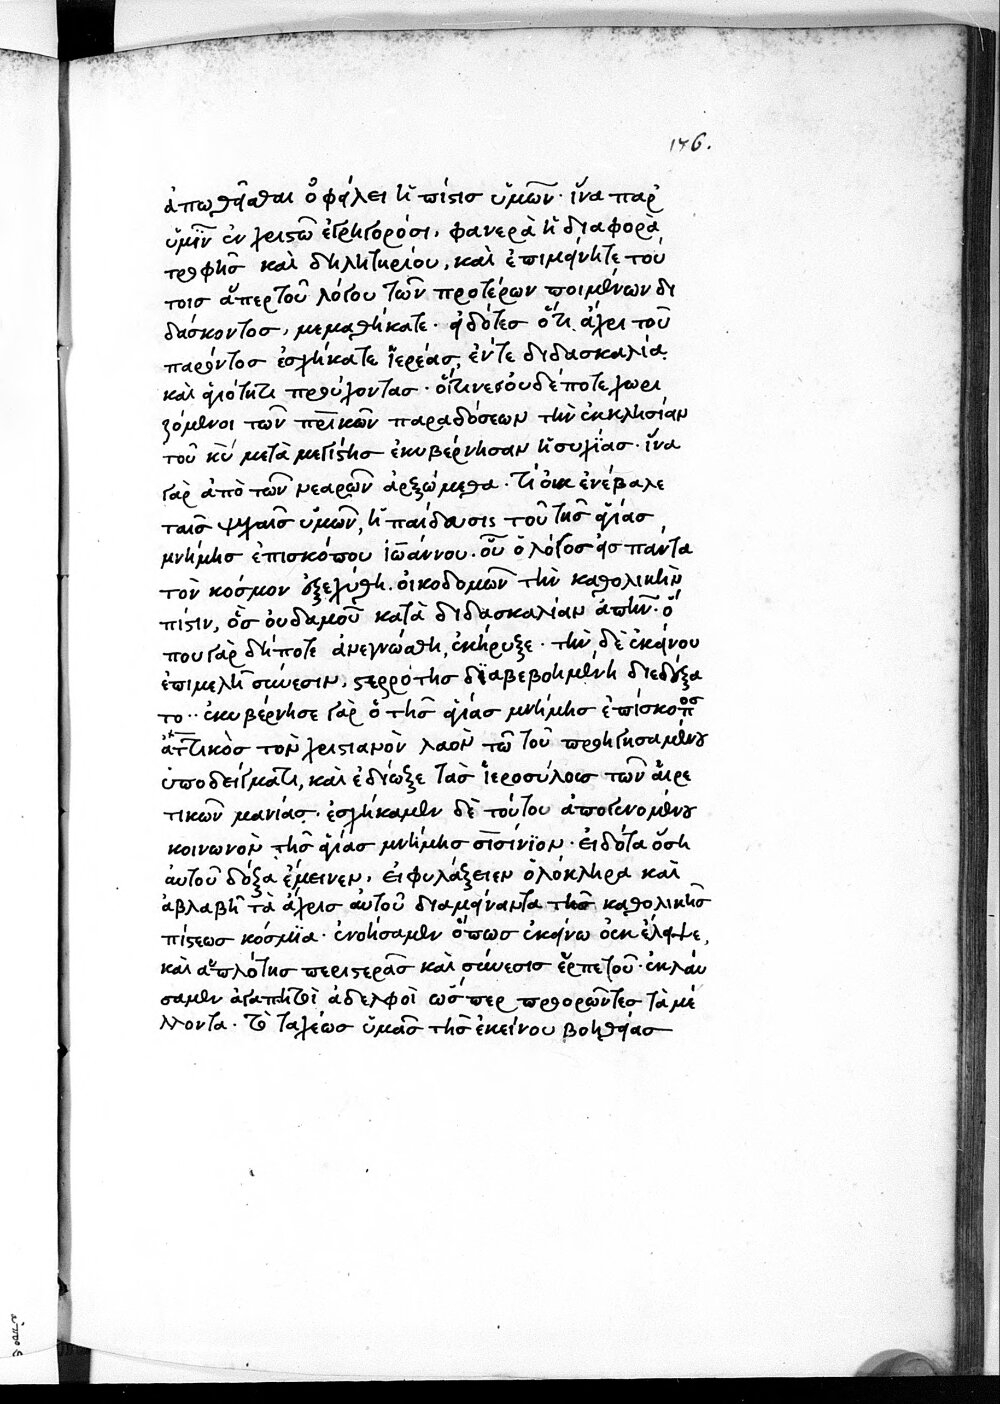 146.
ἀπωθεῖσθαι ὀφείλει ἡ πίστις ὑμῶν· ἵνα παρ
ὑμῖν ἐν χριστῶ ἐγρηγορόσι, φανερὰ ἡ διαφορὰ
τροφῆς καὶ δηλητηρίου, καὶ ἐπιμείνητε τού
τοις ἅπερ τοῦ λόγου τῶν προτέρων ποιμένων δι
δάσκοντος, μεμαθήκατε· εἰδότες ὅτι ἄχρι τοῦ
παρόντος ἐσχήκατε ἱερέας, ἐν τε διδασκαλία
καὶ ἁγιότητι προύχοντας· οἵτινες οὐδέποτε χωρι
ζόμενοι τῶν πρικῶν παραδόσεων τὴν ἐκκλησίαν
τοῦ κυ μετὰ μεγίστης ἐκυβέρνησαν ἡσυχίας· ἵνα
γὰρ ἀπὸ τῶν νεαρῶν ἀρξώμεθα· τί οὐκ ἐνέβαλε
ταῖς ψυχαῖς ὑμῶν, ἡ παίδευσις τοῦ τῆς ἁγίας
μνήμης ἐπισκόπου ἰωάννου· οὗ ὁ λόγος εἰς πάντα
τὸν κόσμον ἐξεχύθη· οἰκοδομῶν τὴν καθολικὴν
πίστιν, ὃς οὐδαμοῦ κατὰ διδασκαλίαν ἄπην· ὅ
που γὰρ δήποτε ἀνεγνώσθη, ἐκήρυξε· τὴν δὲ ἐκείνου
ἐπιμελῆ σύνεσιν, στερρότης διαβεβοημένη διεδέξα
το·· ἐκυβέρνησε γὰρ ὁ τῆς ἁγίας μνήμης ἐπίσκοπος
ἀττικὸς τὸν χριστιανὸν λαὸν τῶ τοῦ προηγησαμένου
ὑποδείγματι, καὶ ἐδίωξε τὰς ἱεροσύλους τῶν αἱρε
τικῶν μανίας· ἐσχήκαμεν δὲ τούτου ἀπογενομένου
κοινωνὸν τῆς ἁγίας μνήμης σισίνϊον· εἰδότα ὅση
αὐτοῦ δόξα ἔμεινεν, εἰ φυλάξειεν ὁλόκληρα καὶ
ἀβλαβῆ τὰ ἄχρις αὐτοῦ διαμείναντα τῆς καθολικῆς
πίστεως κόσμϊα· ἐνοήσαμεν ὅπως ἐκείνω οὐκ ἔλειψε,
καὶ ἁπλότης περιστερᾶς καὶ σύνεσις ἑρπετοῦ· ἐκλαύ
σαμεν ἀγαπητοὶ ἀδελφοὶ ὥσπερ προορῶντες τὰ μέ
λλοντα· τὸ ταχέως ὑμᾶς τῆς ἐκείνου βοηθείας